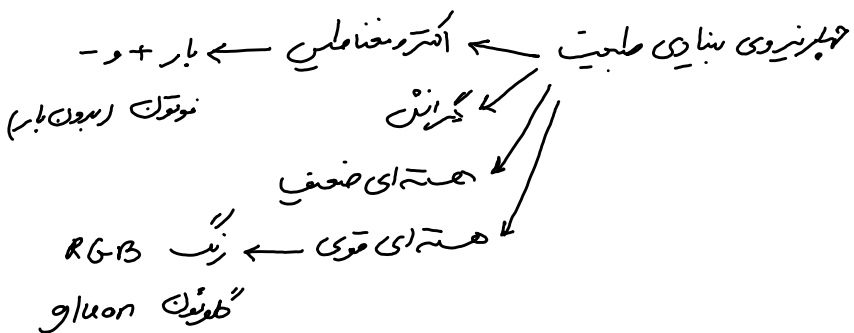 چهار نیروی بنیادی طبیعت ← الکترومغناطیس ← بار + و -
فوتون (بدون بار)
گرانش
هسته‌ای ضعیف
هسته‌ای قوی ← رنگ RGB
گلوئون gluon